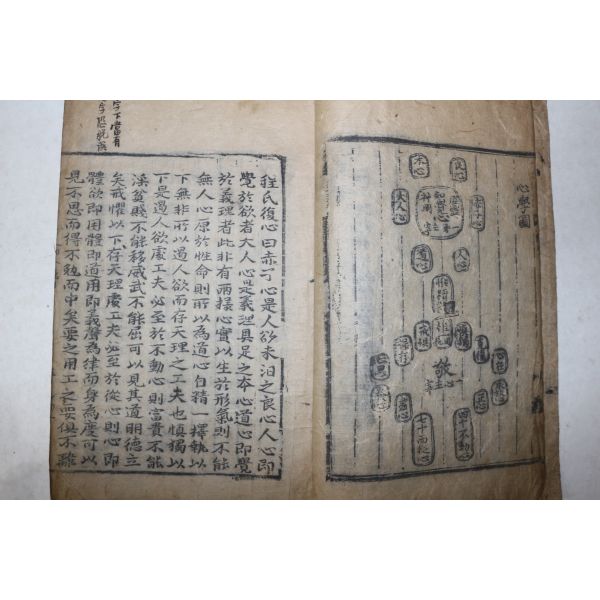 心學圖
良心
本心
赤子心
大人心
人心
道心
敬
心在
心思
操存
戒懼
正心
四十不動心
七十而從心
程氏復心曰赤子心是人欲未汨之良心人心即
覺於欲者大人心是義理具足之本心道心即覺
於義理者此非有兩樣心實以生於形氣則不能
無人心原於性命則所以為道心自精一擇執以
下無非所以遏人欲而存天理之工夫也慎獨以
下是遏人欲處工夫必至於不動心則富貴不能
淫貧賤不能移威武不能屈可以見其道明德立
矣戒懼以下存天理處工夫必至於從心則心即
體欲即用體即道用即義聲為律而身為度可以
見不思而得不勉而中矣要之用工之要俱不離
字下當有
字恐脫誤